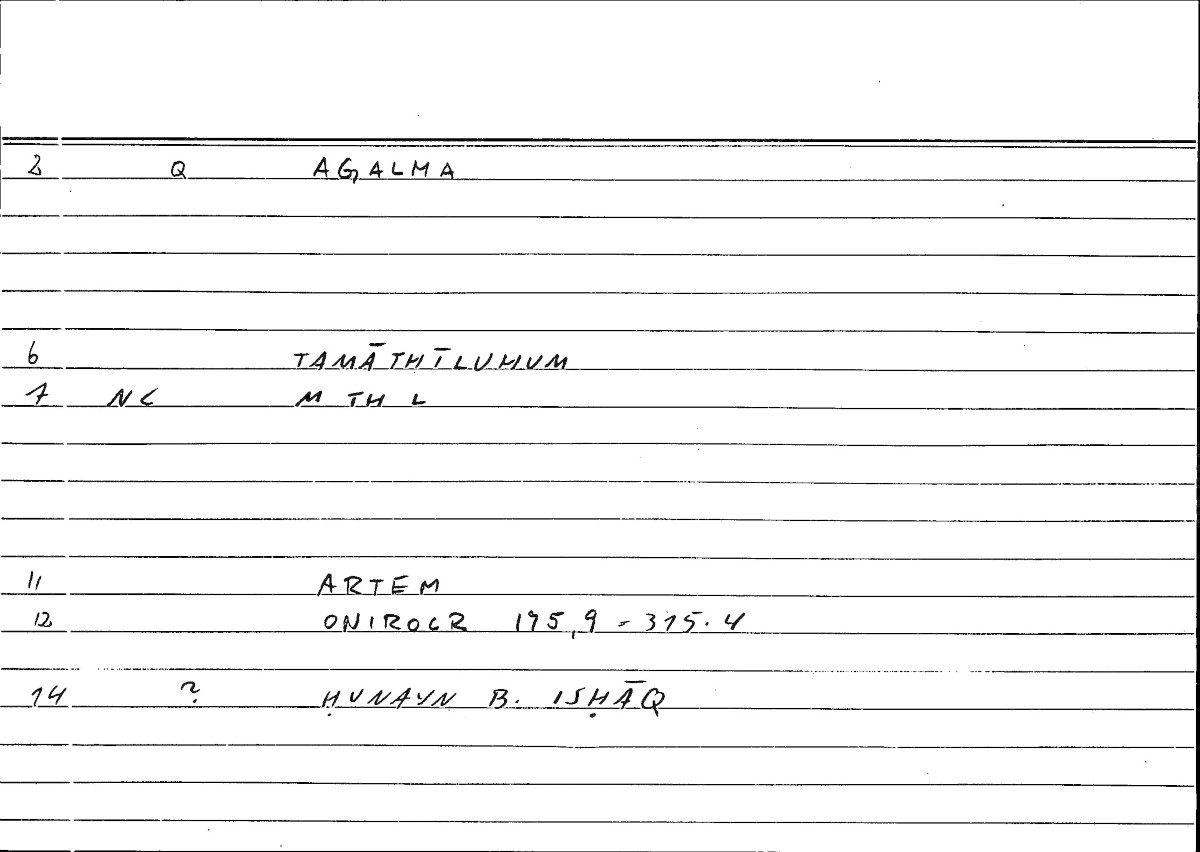 2 Q AGALMA
6 TAMĀTHĪLUHUM
7 NC M TH L
11 ARTEM
12 ONIROCR 195,9 = 315.4
14 ? ḤUNAYN B. ISḤĀQ